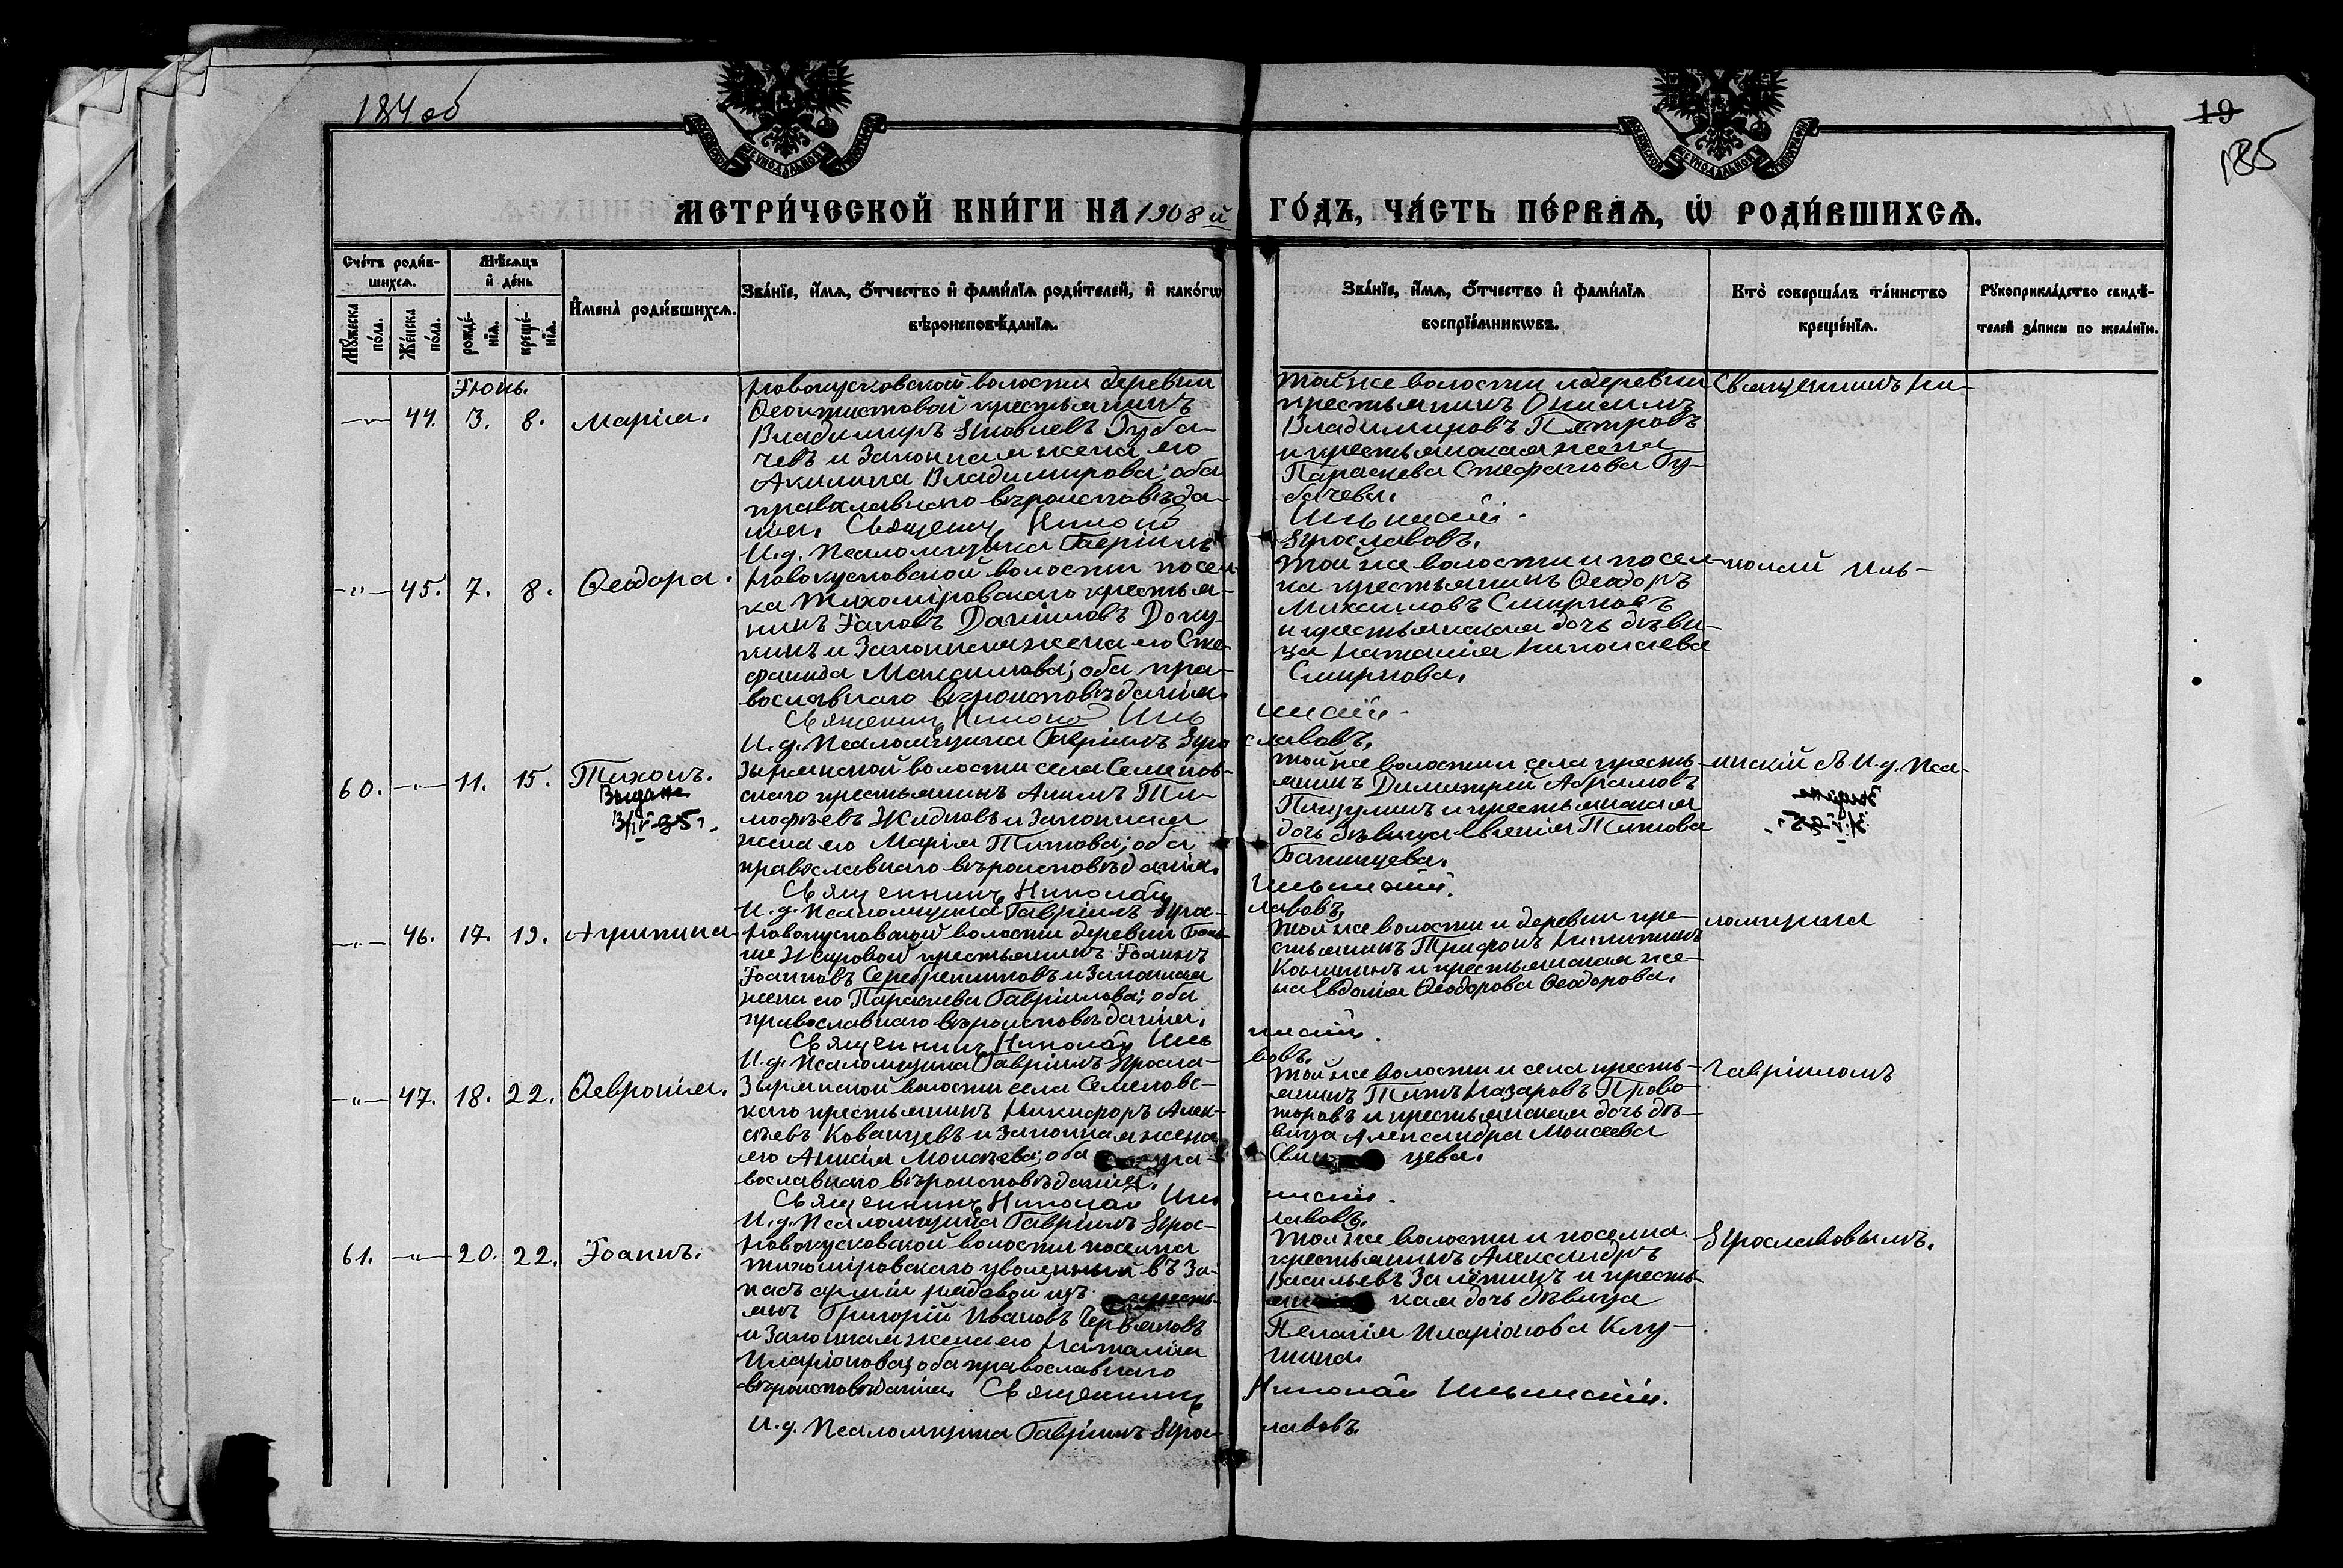 184 об
19
185
МЕТРИ́ЧЕСКОЙ КНИ́ГИ НА 1908й ГО́ДЪ, ЧА́СТЬ ПЕ́РВАѦ, Ѡ҆ РОДИ́ВШИХСѦ.
Сче́тъ роди́в-
шихсѧ.
Мѣ́сѧцъ
и҆ де́нь
Мꙋ́жеска по́ла.
Же́нска по́ла.
рожде́-
нїѧ.
креще́-
нїѧ.
И҆мена̀ роди́вшихсѧ.
Зва́нїе, и҆́мѧ, ѻ҆́тчество и҆ фами́лїѧ роди́телей, и҆ како́гѡ
вѣроисповѣ́данїѧ.
Зва́нїе, и҆́мѧ, ѻ҆́тчество и҆ фами́лїѧ
воспрїе́мникѡвъ.
Кто̀ соверша́лъ та́инство
креще́нїѧ.
Рꙋкоприкла́дство свидѣ́-
телей за́писи по жела́нїю.
Іюнь.
44. 3. 8. Марія.
Новокусковской волости деревни
Ѳеоктистовой крестьянинъ
Владимиръ Яковлевъ Губа-
чевъ и законная жена его
Акилина Владимирова; оба
православнаго вѣроисповѣда-
нія. Священникъ Николай
И.д. Псаломщика Гавріилъ
Той же волости и деревни
крестьянинъ Онисимъ
Владимировъ Петровъ
и крестьянская жена
Параскева Стефанова Гу-
бачева.
Ильинскій.
Ярославовъ.
Священникъ Ни-
45. 7. 8. Ѳеодора.
Новокусковской волости посел-
ка Тихоміровскаго крестья-
нинъ Іаковъ Даніиловъ Доку-
кинъ и законная жена его Сте-
фанида Максимова; оба пра-
вославнаго вѣроисповѣданія.
Священникъ Николай Иль
И.д. Псаломщика Гавріилъ Яро
Той же волости и посел-
ка крестьянинъ Ѳеодоръ
Михаиловъ Смирновъ
и крестьянская дочь дѣви-
ца Наталія Николаева
Смирнова.
инскій.
славовъ.
колай Иль-
60. 11. 15. Тихонъ.
Выдана
3/IV-35 г.
Зырянской волости села Семенов-
скаго крестьянинъ Ти-
мофѣевъ Жидковъ и законная
жена его Марія Титова; оба
православнаго вѣроисповѣданія.
Священникъ Николай
И.д. Псаломщика Гавріилъ Яро-
Той же волости и села кресть-
янинъ Димитрій Абрамовъ
и крестьянская
дочь дѣвица Евгенія Титова
Ильинскій.
лавовъ.
инскій съ И.д. Пса-
46. 17. 19. Агрипина
Новокусковской волости деревни Боль-
ше Жировой крестьянинъ Іоаннъ
Іоанновъ Серебренниковъ и законная
жена его Параскева Гавріилова; оба
православнаго вѣроисповѣданія.
Священникъ Николай Иль
И.д. Псаломщика Гавріилъ Яросла-
Той же волости и деревни кре-
стьянинъ Трифонъ Никитинъ
и крестьянская же-
на Евдокія Ѳеодорова Ѳеодорова.
инскій.
вовъ.
ломщика
47. 18. 22. Ѳевронія.
Зырянской волости села Семеновс-
каго крестьянинъ Никифоръ Алек-
сѣевъ Кованцевъ и законная жена
его Анисія Моисѣева; оба пра-
вославнаго вѣроисповѣданія.
Священникъ Николай Иль
И.д. Псаломщика Гавріилъ Ярос-
Той же волости и села кресть-
янинъ Титъ Назаровъ Прово-
торовъ и крестьянская дочь дѣ-
вица Александра Моисеева
цева.
инскій.
лавовъ.
Гавріиломъ
61. 20. 22. Іоаннъ.
Новокусковской волости поселка
Тихоміровскаго уволенный въ за-
пасъ арміи рядовой изъ кресть-
янъ Григорій Ивановъ Червяковъ
и законная жена его Наталія
Иларіонова; оба православнаго
вѣроисповѣданія. Священникъ
И.д. Псаломщика Гавріилъ Ярос-
Той же волости и поселка
крестьянинъ Александръ
Васильевъ Залётинъ и кресть-
янская дочь дѣвица
Пелагія Иларіонова Клу-
шина.
Николай Ильинскій.
лавовъ.
Ярославовымъ.